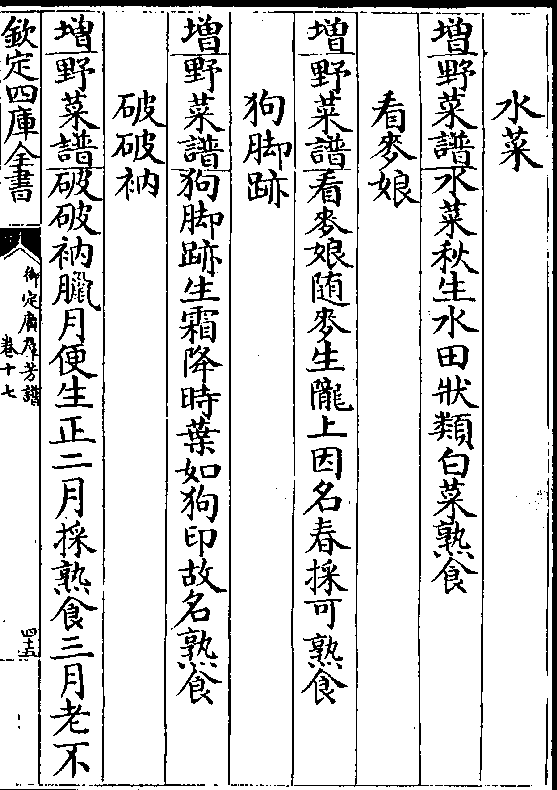 水菜
增野菜譜水菜秋生水田狀類白菜熟食
看麥娘
增野菜譜看麥娘随麥生隴上因名春採可熟食
狗脚跡
增野菜譜狗脚跡生霜降時葉如狗印故名熟食
破破衲
增野菜譜破破衲臘月便生正二月採熟食三月老不
欽定四庫全書
御定廣羣芳譜
卷十七
四十五